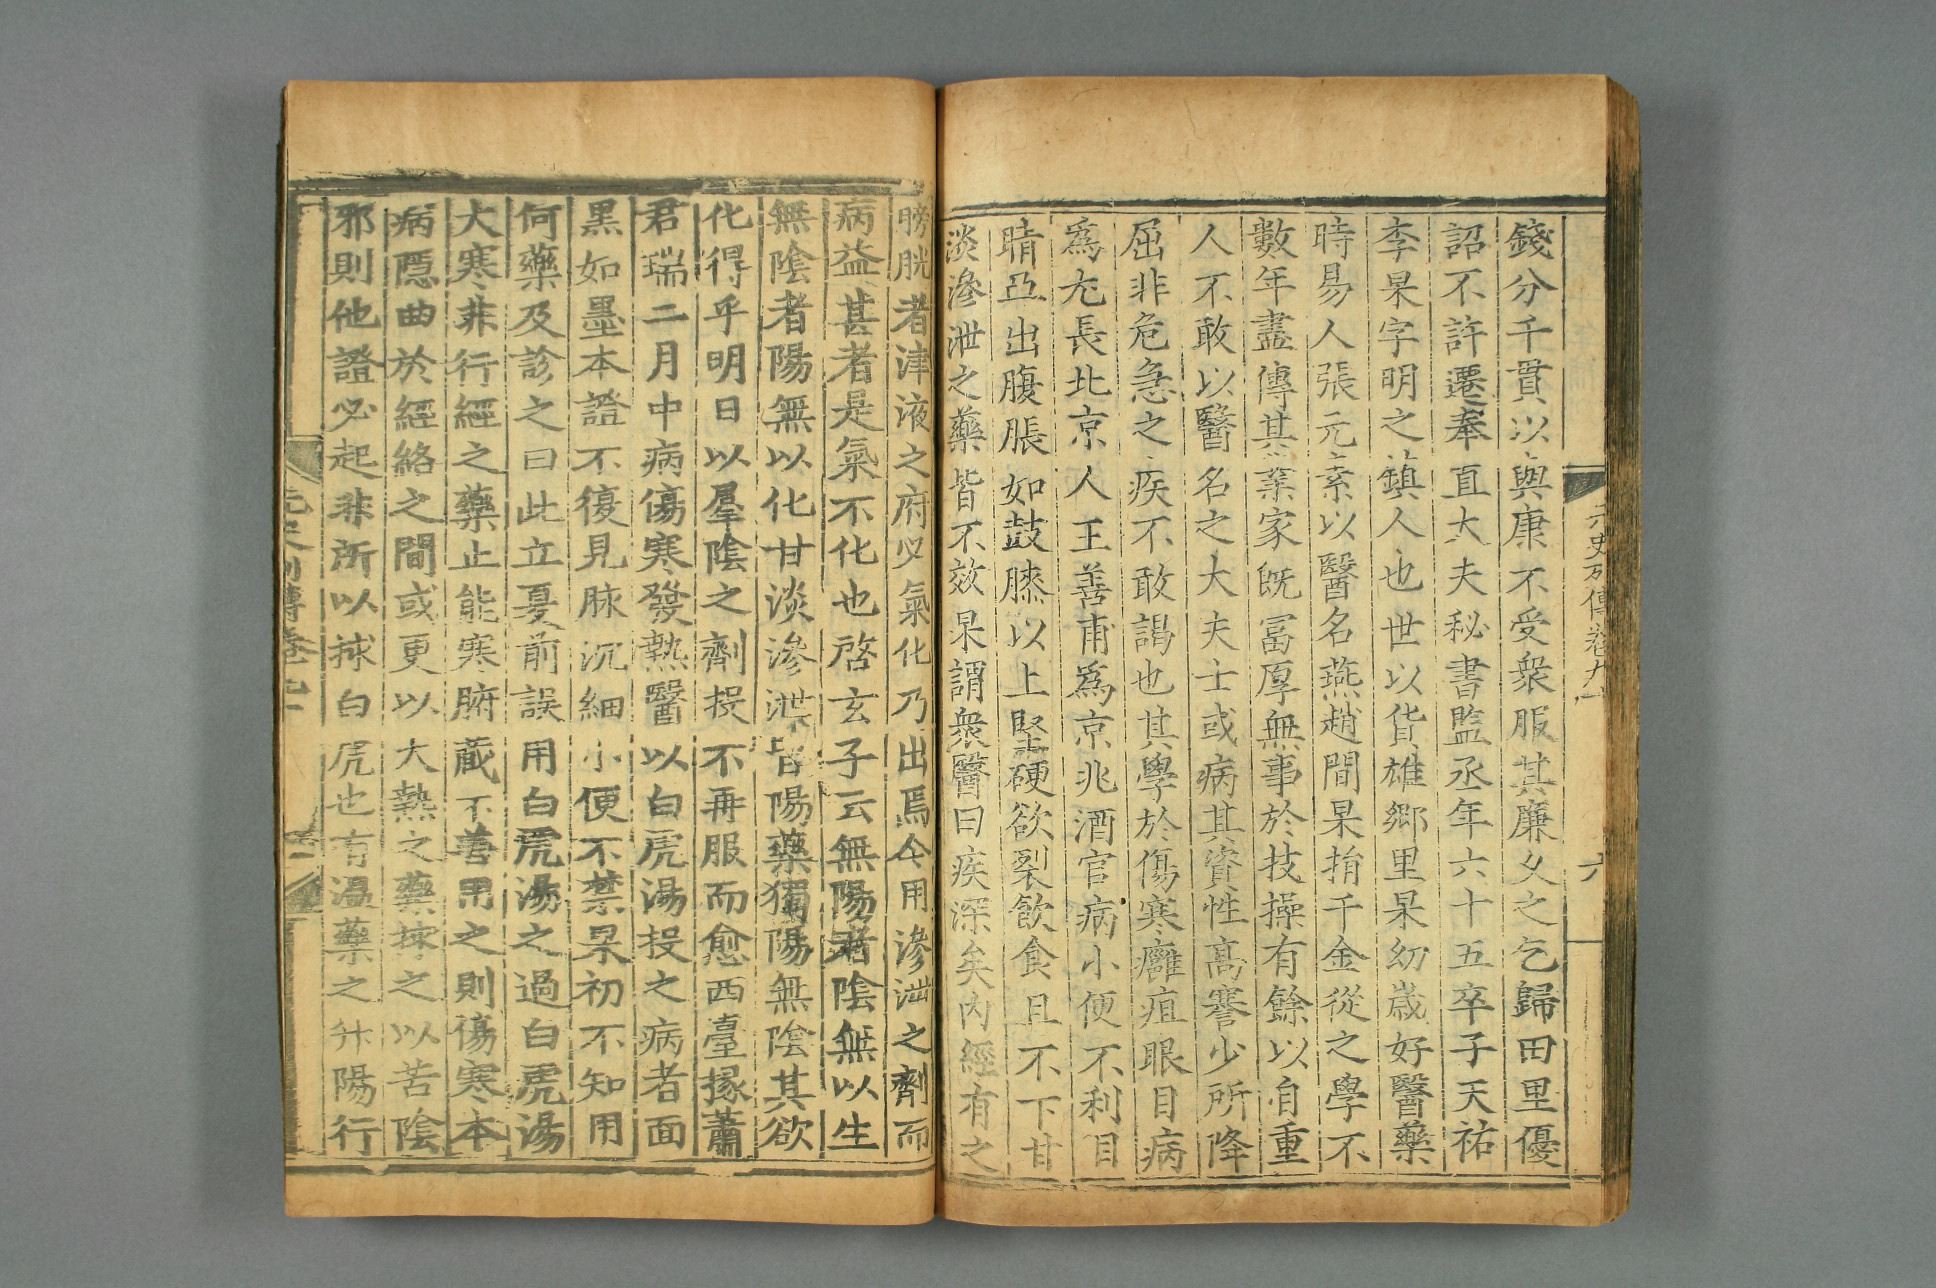 錢分千貫以與康不受衆服其廉乆之乞歸田里優
詔不許遷奉直大夫秘書監丞年六十五卒子天祐
李杲字明之鎮人也世以貨雄郷里杲㓜嵗好醫藥
時易人張元素以醫名燕趙間杲捐千金從之學不
數年盡傳其業家既冨厚無事於技操有餘以自重
人不敢以醫名之大夫士或病其資性髙謇少所降
屈非危急之疾不敢謁也其學於傷寒癰疽眼目病
爲尤長北京人王善甫爲京兆酒官病小便不利目
睛凸出腹脹如鼓膝以上堅硬欲裂飲食且不下甘
淡滲泄之藥皆不效杲謂衆醫曰疾深矣内經有之
膀胱者津液之府必氣化乃出焉今用滲泄之劑而
病益甚者是氣不化也啓玄子云無陽者陰無以生
無陰者陽無以化甘淡滲泄皆陽藥獨陽無陰其欲
化得乎明日以羣陰之劑投不再服而愈西臺掾蕭
君瑞二月中病傷寒發熱醫以白虎湯投之病者面
黒如墨本證不復見脉沉細小便不禁杲初不知用
何藥及診之曰此立夏前誤用白虎湯之過白虎湯
大寒非行經之藥止能寒腑藏不善用之則傷寒本
病隱曲於經絡之間或更以大熱之藥捄之以苦陰
邪則他證必起非所以捄白虎也有温藥之升陽行
元史列傳卷九十
六